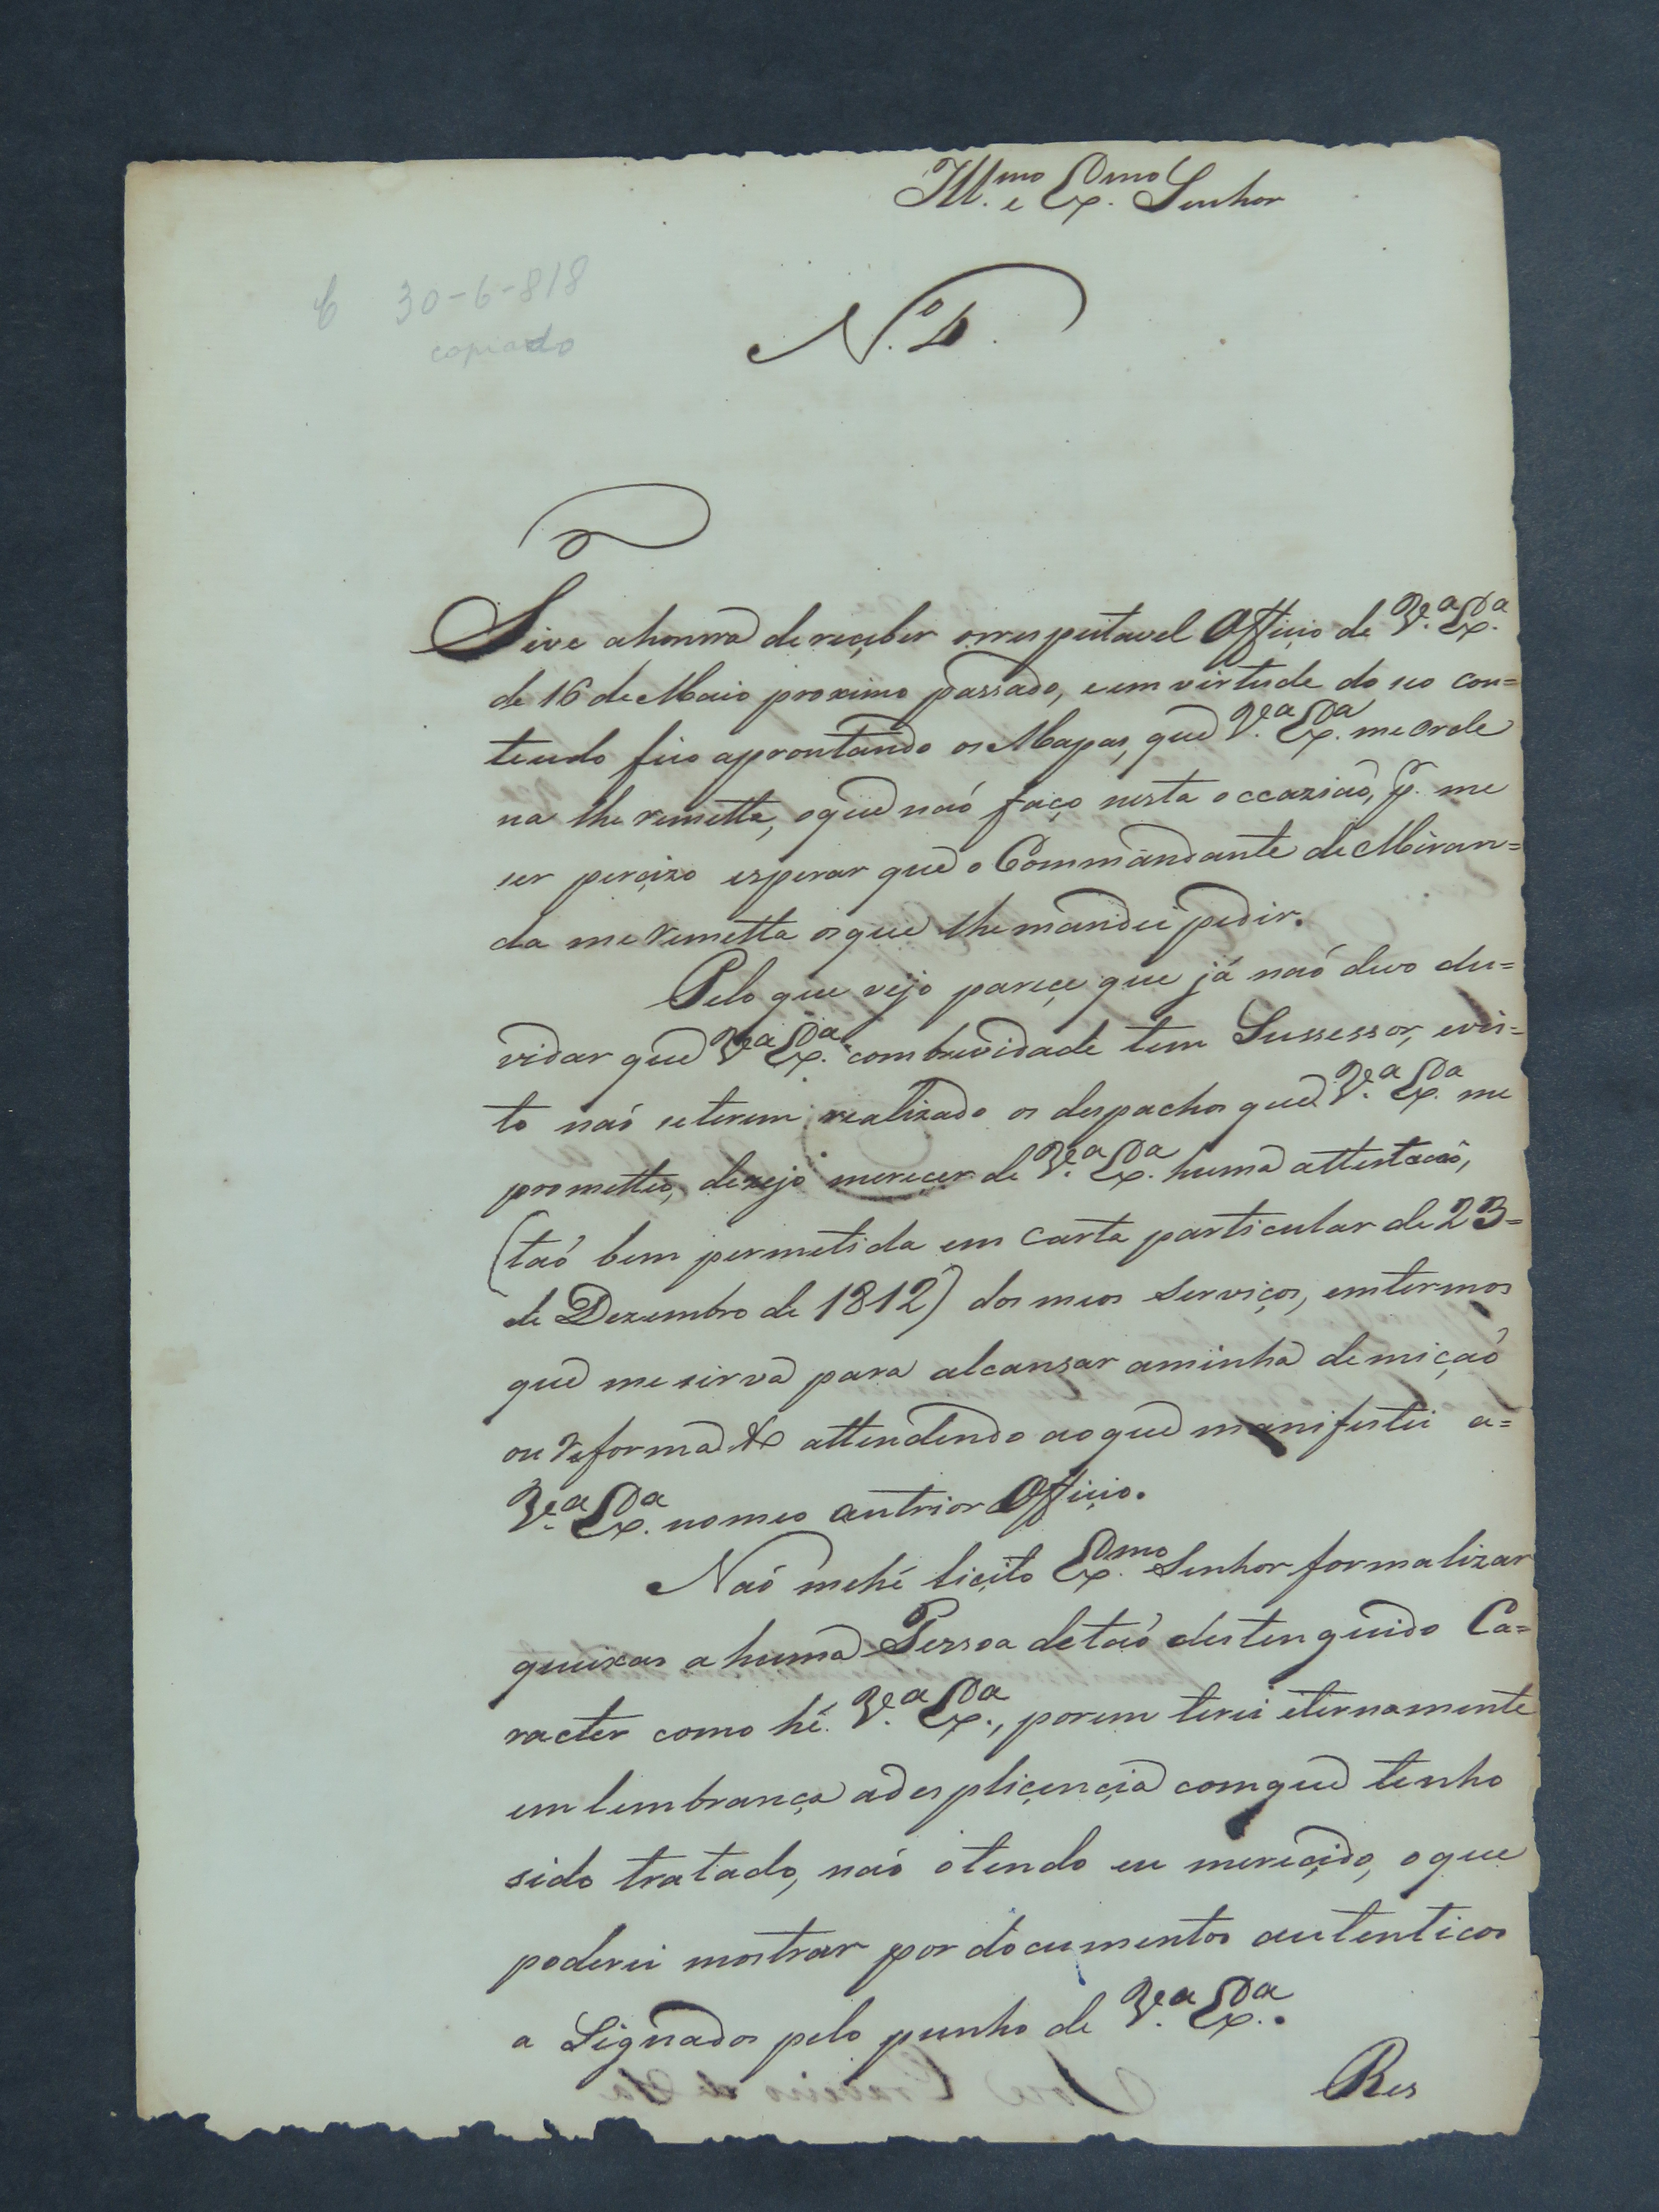 Ill.mo e Ex.mo Senhor
C 30-6-818
copiado
N.o 4.
Tive ahonra dereçeber orrespeitavel Offiçio de V.a Ex.a
de 16 de Maio proximo passado, eem virtude do seo con=
teudo fico aprontando os Mapas, que V.a Ex.a me orde
na lhe remetta, oque naó faço nesta occaziaõ, p.r me
ser perçizo esperar que o Commandante de Miran=
da me remetta os que lhe mandei pedir.
Pelo que vejo pareçe que já naó devo du=
vidar que V.a Ex.a com brevidade tem Sussessor, evis=
to naó se terem realizado os despachos que V.a Ex.a me
prometteo, dezejo mereçer de V.a Ex.a huma attestacaõ,
(taó bem permetida em Carta particular de 23=
de Dezembro de 1812) dos meos Serviços, emtermos
que me sirva para alcansar aminha demiçaó
ou reforma & attendendo aoque manifestei a=
V.a Ex.a nomeo antrior Offiçio.
Naó mehé liçito Ex.mo Senhor formalizar
queixas a huma Pessoa detaó destenguido Ca=
racter como hé V.a Ex.a, porem terei eternamente
em lembrança adespliçençia comque tenho
sido tratado, naó otendo eu mereçido, oque
poderei mostrar por documentos autenticos
a Signados pelo punho de V.a Ex.a.
Res